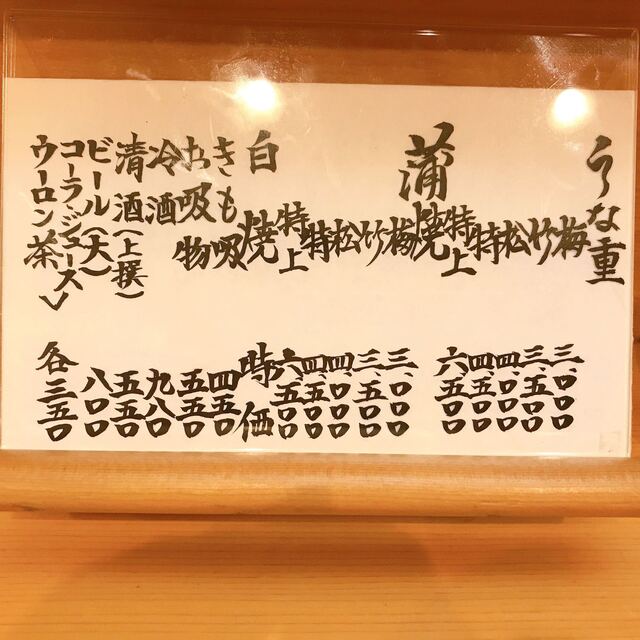 うな重
梅 三、〇〇〇
竹 三、五〇〇
松 四、〇〇〇
特 四、五〇〇
特上 六五〇〇
蒲焼
梅 三、〇〇〇
竹 三、五〇〇
松 四〇〇〇
特 四、五〇〇
特上 六、五〇〇
白焼 時価
きも吸 四五〇
お吸物 五〇〇
冷酒 九八〇
清酒(上撰) 五五〇
ビール(大) 八〇〇
コーラ・ジュース
ウーロン茶 各三五〇